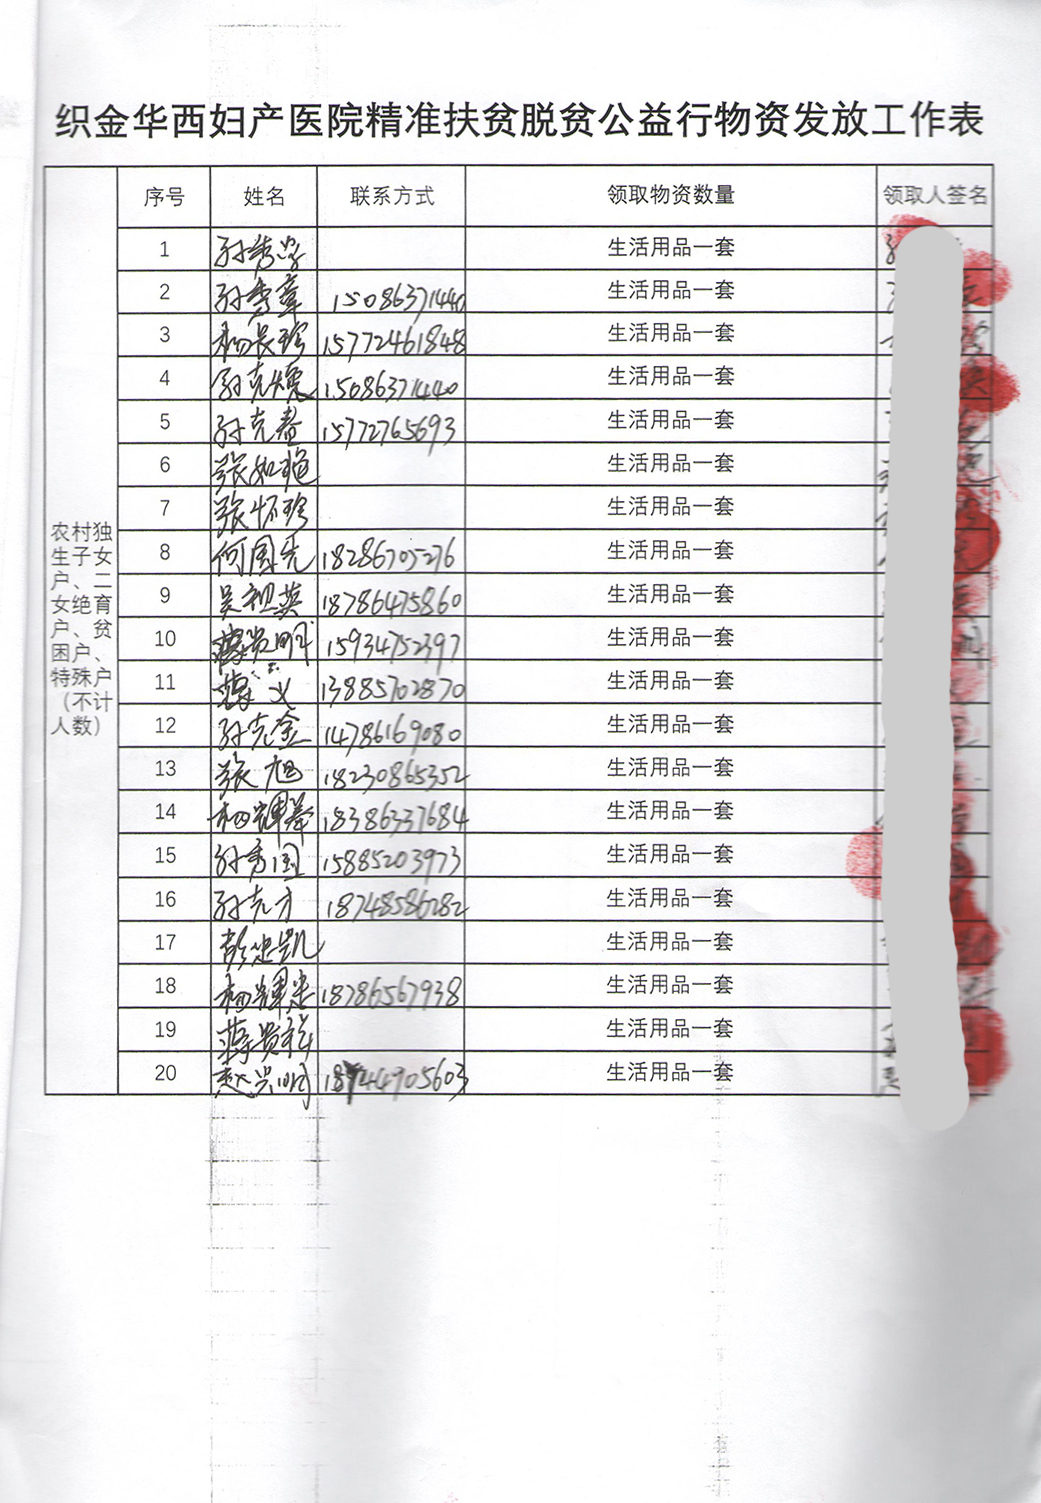 织金华西妇产医院精准扶贫脱贫公益行物资发放工作表
序号 姓名 联系方式 领取物资数量 领取人签名
农村独
生子女
户、二
女绝育
户、贫
困户、
特殊户
（不计
人数）
1 孙秀学 生活用品一套
2 孙秀章 15086371440 生活用品一套
3 杨长珍 15772461848 生活用品一套
4 孙克 15086371440 生活用品一套
5 孙克春 15772765693 生活用品一套
6 张如艳 生活用品一套
7 张怀珍 生活用品一套
8 何国亮 18286705276 生活用品一套
9 吴祖英 18786475860 生活用品一套
10 蒋贵明 15934752397 生活用品一套
11 蒋义 13885702870 生活用品一套
12 孙克金 14786169080 生活用品一套
13 张旭 18230865352 生活用品一套
14 杨辉举 18386337684 生活用品一套
15 孙秀国 15885203973 生活用品一套
16 孙克方 18748586282 生活用品一套
17 彭忠凯 生活用品一套
18 杨辉 18786567938 生活用品一套
19 蒋贵祥 生活用品一套
20 赵兴明 生活用品一套